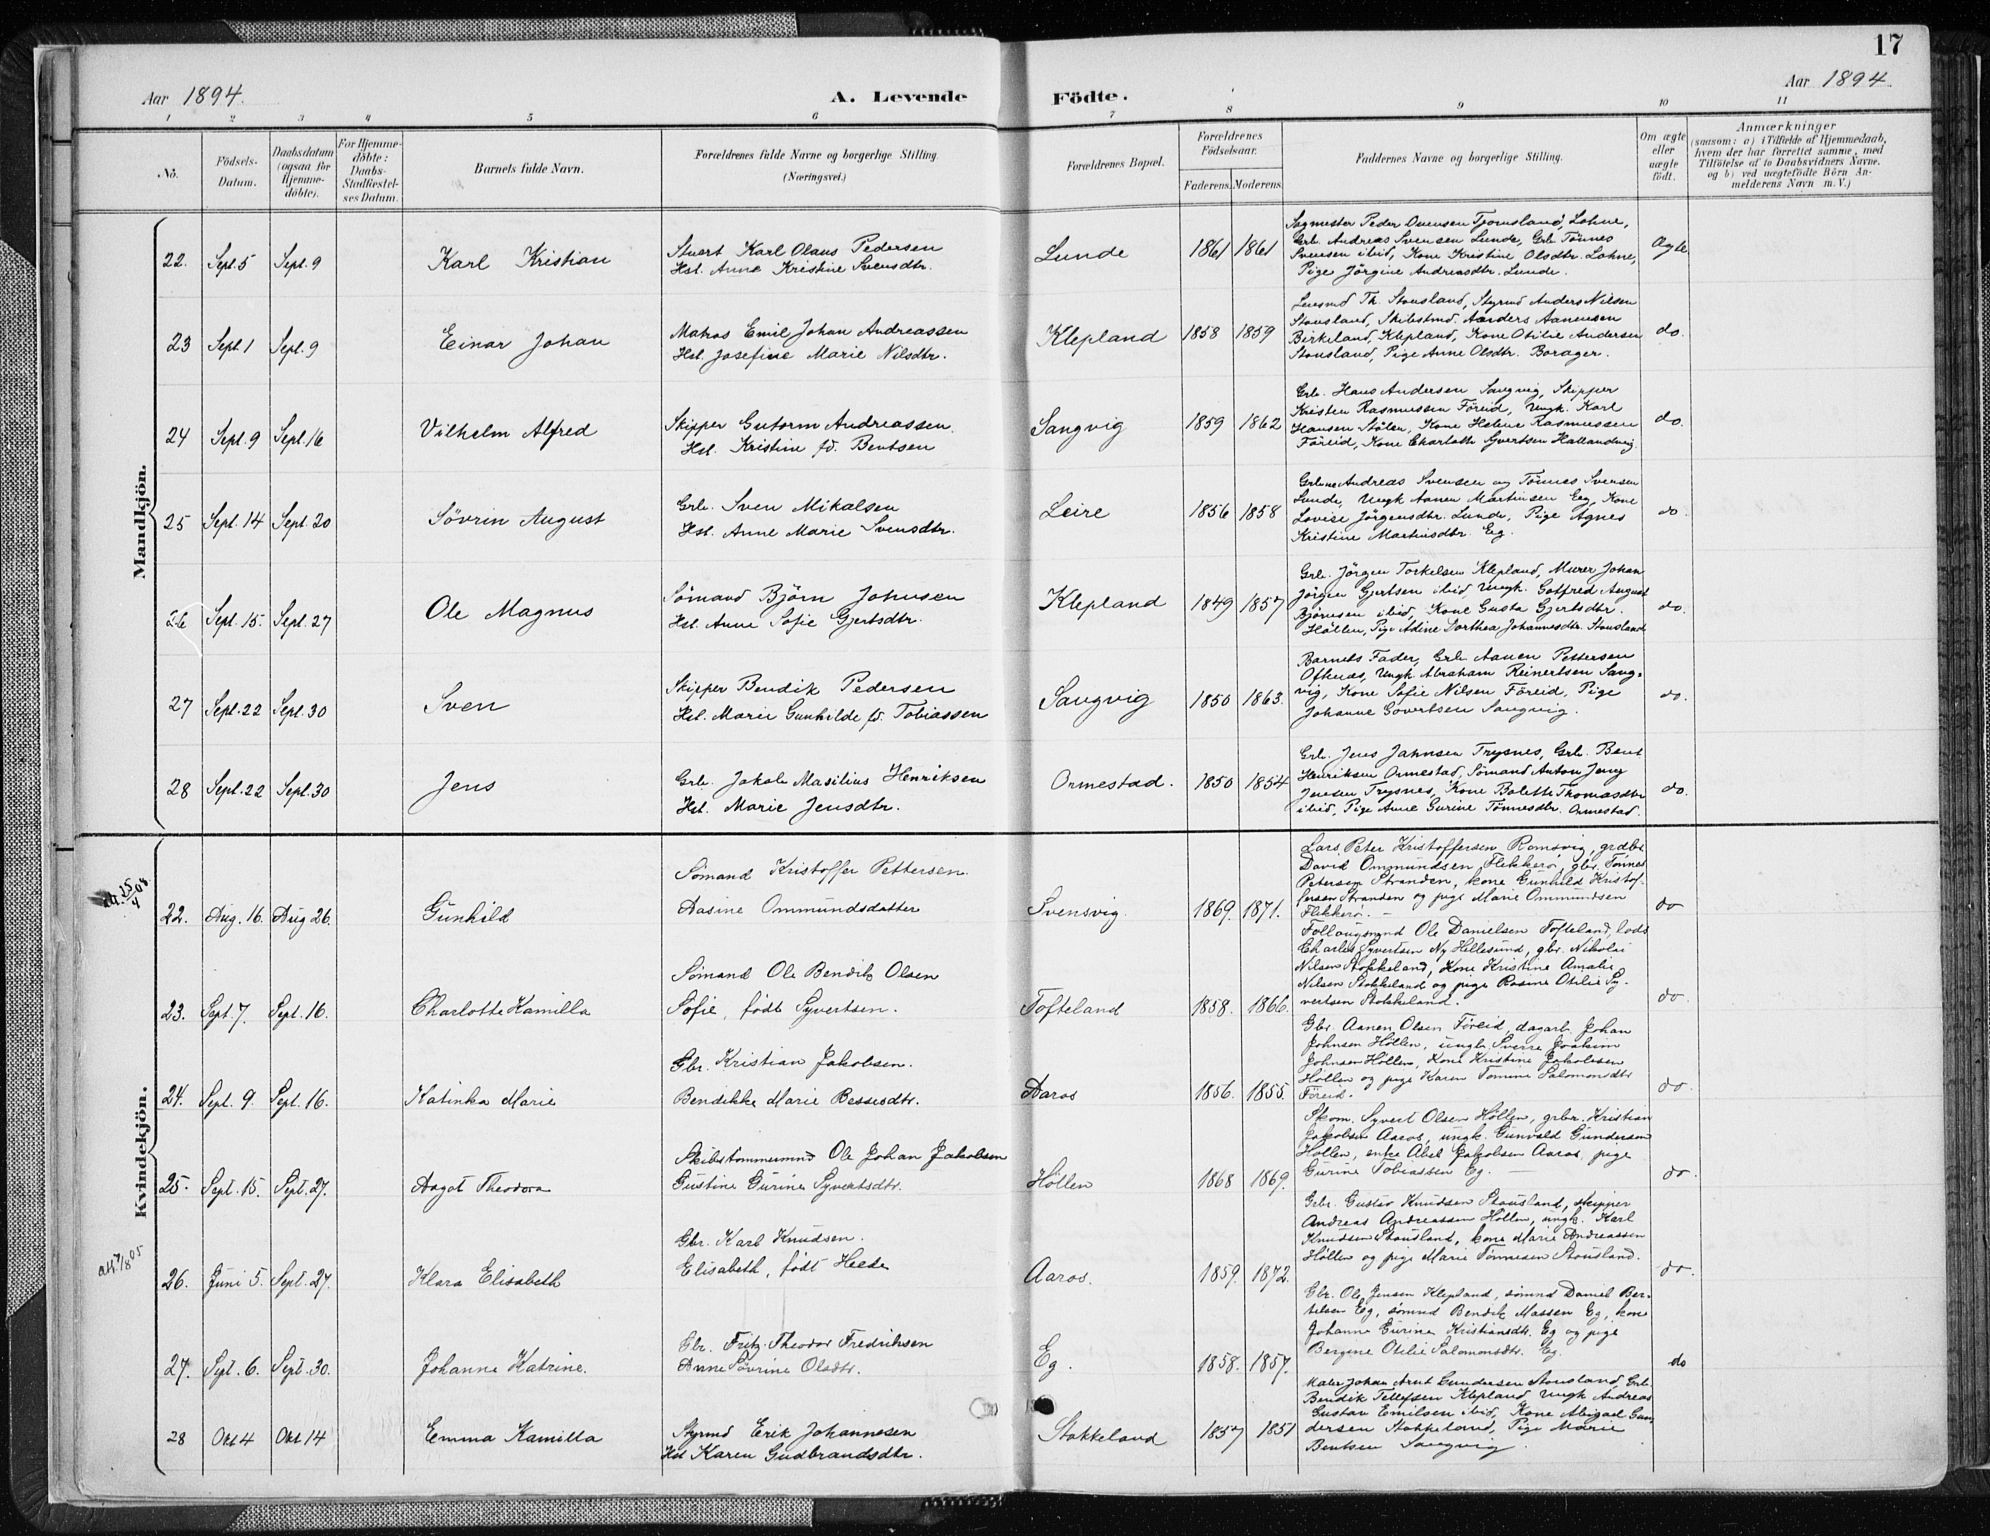 17
Aar 1894. A. Levende Födte. Aar 1894
1 2 3 4 5 6 7 8 9 10 11
No. Födsels-Datum. Daabsdatum (ogsaa for Hjemmedöbte). For Hjemmedöbte: Daabs-Stadfæstelses Datum. Barnets fulde Navn. Forældrenes fulde Navne og borgerlige Stilling. (Næringsvei.) Forældrenes Bopæl. Forældrenes Födselsaar. Faderens. Moderens. Faddernes Navne og borgerlige Stilling. Om ægte eller uægte födt. Anmærkninger (saasom: a) i Tilfælde af Hjemmedaab, hvem der har forrettet samme, med Tilföielse af to Daabsvidners Navne. og b) ved uægtefödte Börn Anmelderens Navn m. V.)
Mandkjön.
22. Sept. 5 Sept. 9 Karl Kristian
Stuert Karl Olaus Pedersen
Hst. Anne Kristine Svensdtr.
Lunde 1861 1861
Sagmester Peder Tjomsland, Lohne,
Grb. Andreas Svensen Lunde, Grb. Tönnes
Svensen ibid, Kone Kristine Olsdtr. Lohne,
Pige Jörgine Andreasdtr. Lunde.
Ægte
23 Sept. 1 Sept. 9 Einar Johan
Matros Emil Johan Andreassen
Hst. Josefine Marie Nilsdtr.
Klepland 1858 1859
Th. Stausland, Styrmd Anders Nilsen
Stausland, Skibstmd Anders Aanensen
Birkeland, Klepland, Kone Otilie Andersen
Stausland, Pige Anne Olsdtr. Borager.
do.
24 Sept. 9 Sept. 16 Vilhelm Alfred
Skipper Gutorm Andreassen
Hst. Kristine fd. Bentsen
Sangvig 1859 1862
Grb. Hans Andersen Sangvig, Skipper
Kristen Rasmussen Föreid, Ungk. Karl
Hansen Stölen, Kone Helene Rasmussen
Föreid, Kone Charlotte Gvertsen Hallandvig
do.
25 Sept. 14 Sept. 20 Sövrin August
Grb. Sven Mikalsen
Hst. Anne Marie Svensdtr.
Leire 1856 1858
Grbne Andreas Svensen og Tönnes Svensen
Lunde, Ungk Aanen Martinsen Eg, Kone
Lovise Jörgensdtr. Lunde, Pige Agnes
Kristine Martinsdtr. Eg.
do
26 Sept. 15. Sept. 27 Ole Magnus
Sömand Björn Johnsen
Hst. Anne Sofie Gjertsdtr.
Klepland 1849 1857
Grb. Jörgen Torkelsen Klepland, Murer Johan
Jörgen Gjertsen ibid, Ungk. Gotfred August
Björnsen ibid, Kone Gusta Gjertsdtr.
Höllen, Pige Adine Dorthea Johannesdtr. Stausland
do.
27 Sept. 22 Sept. 30 Sven
Skipper Bendik Pedersen
Hst. Marie Gunhilde fd. Tobiassen
Sangvig 1850 1863.
Barnets Fader, Grb Aanen Pettersen
Oftenæs, Ungk Abraham Reinertsen Sang-
vig, Kone Sofie Nilsen Föreid, Pige
Johanne Govertsen Sangvig.
do.
28 Sept. 22 Sept. 30 Jens
Grb. Jakob Masilius Henriksen
Hst. Marie Jensdtr.
Ormestad. 1850 1854
Grb. Jens Jahnsen Trysnes, Grb. Bent
Henriksen Ormestad, Sömand Anton Jens
Jensen Trysnes, Kone Bolette Thomasdtr
ibid, Pige Anne Gurine Tönnesdtr. Ormestad.
do.
Kvindekjön.
25/4 08.
22. Aug. 16. Aug 26. Gunhild
Sömand Kristoffer Pettersen.
Aasine Ommundsdatter
Svensvig. 1869. 1871.
Lars Peter Kristoffersen Romsvig, grdbr
David Ommundsen Flekkerö, gbr. Tönnes
Petersen Stranden, kone Gunhild Kristof-
fersen Stranden og pige Marie Ommundsen
Flekkerö. -
do
23. Sept. 7. Sept. 16. Charlotte Kamilla
Sömand Ole Bendik Olsen
Sofie, födt Syvertsen.
Tofteland 1858. 1866.
Ole Danielsen Tofteland, lods
Charles Syvertsen Ny Hellesund, gbr. Nikolai
Nilsen Stokkeland, Kone Kristine Amalie
Nilsen Stokkeland og pige Rasine Otilie Sy-
vertsen Stokkeland.
do.
24. Sept. 9. Sept. 16. Katinka Marie
Gbr. Kristian Jakobsen.
Bendikke Marie Bessesdtr.
Aaros 1856. 1855.
Gbr. Aanen Olsen Föreid, dagarb. Johan
Johnsen Höllen, ungk. Sverre Joakim
Johnsen Höllen, Kone Kristine Jakobsen
Höllen og pige Karen Tomine Salomonsdtr
Föreid.
do.
25. Sept. 15. Sept. 27. Aagot Theodora
Skibstømmermnd Ole Johan Jakobsen
Gustine Gurine Syvertsdtr.
Höllen 1868 1869.
Skom. Syvert Olsen Höllen, grbr. Kristian
Jakobsen Aaros, ungk. Gunvald Gundersen
Höllen, enke Abel Jakobsen Aaros, pige
Gurine Tobiassen Eg. -
do.
att 7/8 05
26. Juni 5. Sept. 27. Klara Elisabeth
Gbr. Karl Knudsen.
Elisabeth, födt Heede
Aaros. 1859. 1872.
Gbr. Gustav Knudsen Stausland, skipper
Andreas Andreassen Höllen, ungk. Karl
Knudsen Stausland, kone Marie Andreassen
Höllen og pige Marie Tönnesen Stausland.
do.
27. Sept. 6. Sept. 30. Johanne Katrine.
Gbr. Fritz Theodor Fredriksen
Anne Sövrine Olsdtr.
Eg. 1858. 1857.
Gbr. Ole Jensen Klepland, sömnd Daniel Ber-
telsen Eg, sömnd Bendik Massen Eg, kone
Johanne Gurine Kristiansdtr. Eg og pige
Bergine Otilie Salomonsdtr. Eg.
do
28 Okt 4 Okt 14 Emma Kamilla
Styrmd Erik Johannesen
Hst Karen Gudbrandsdtr.
Stokkeland 1857 1851
Maler Johan Arnt Gundersen Stausland, Grb.
Bendik Tellefsen Klepland, Ungk Andreas
Gustav Emilsen ibid, Kone Abigael Gun-
dersen Stokkeland, Pige Marie
Bentsen Sangvig.